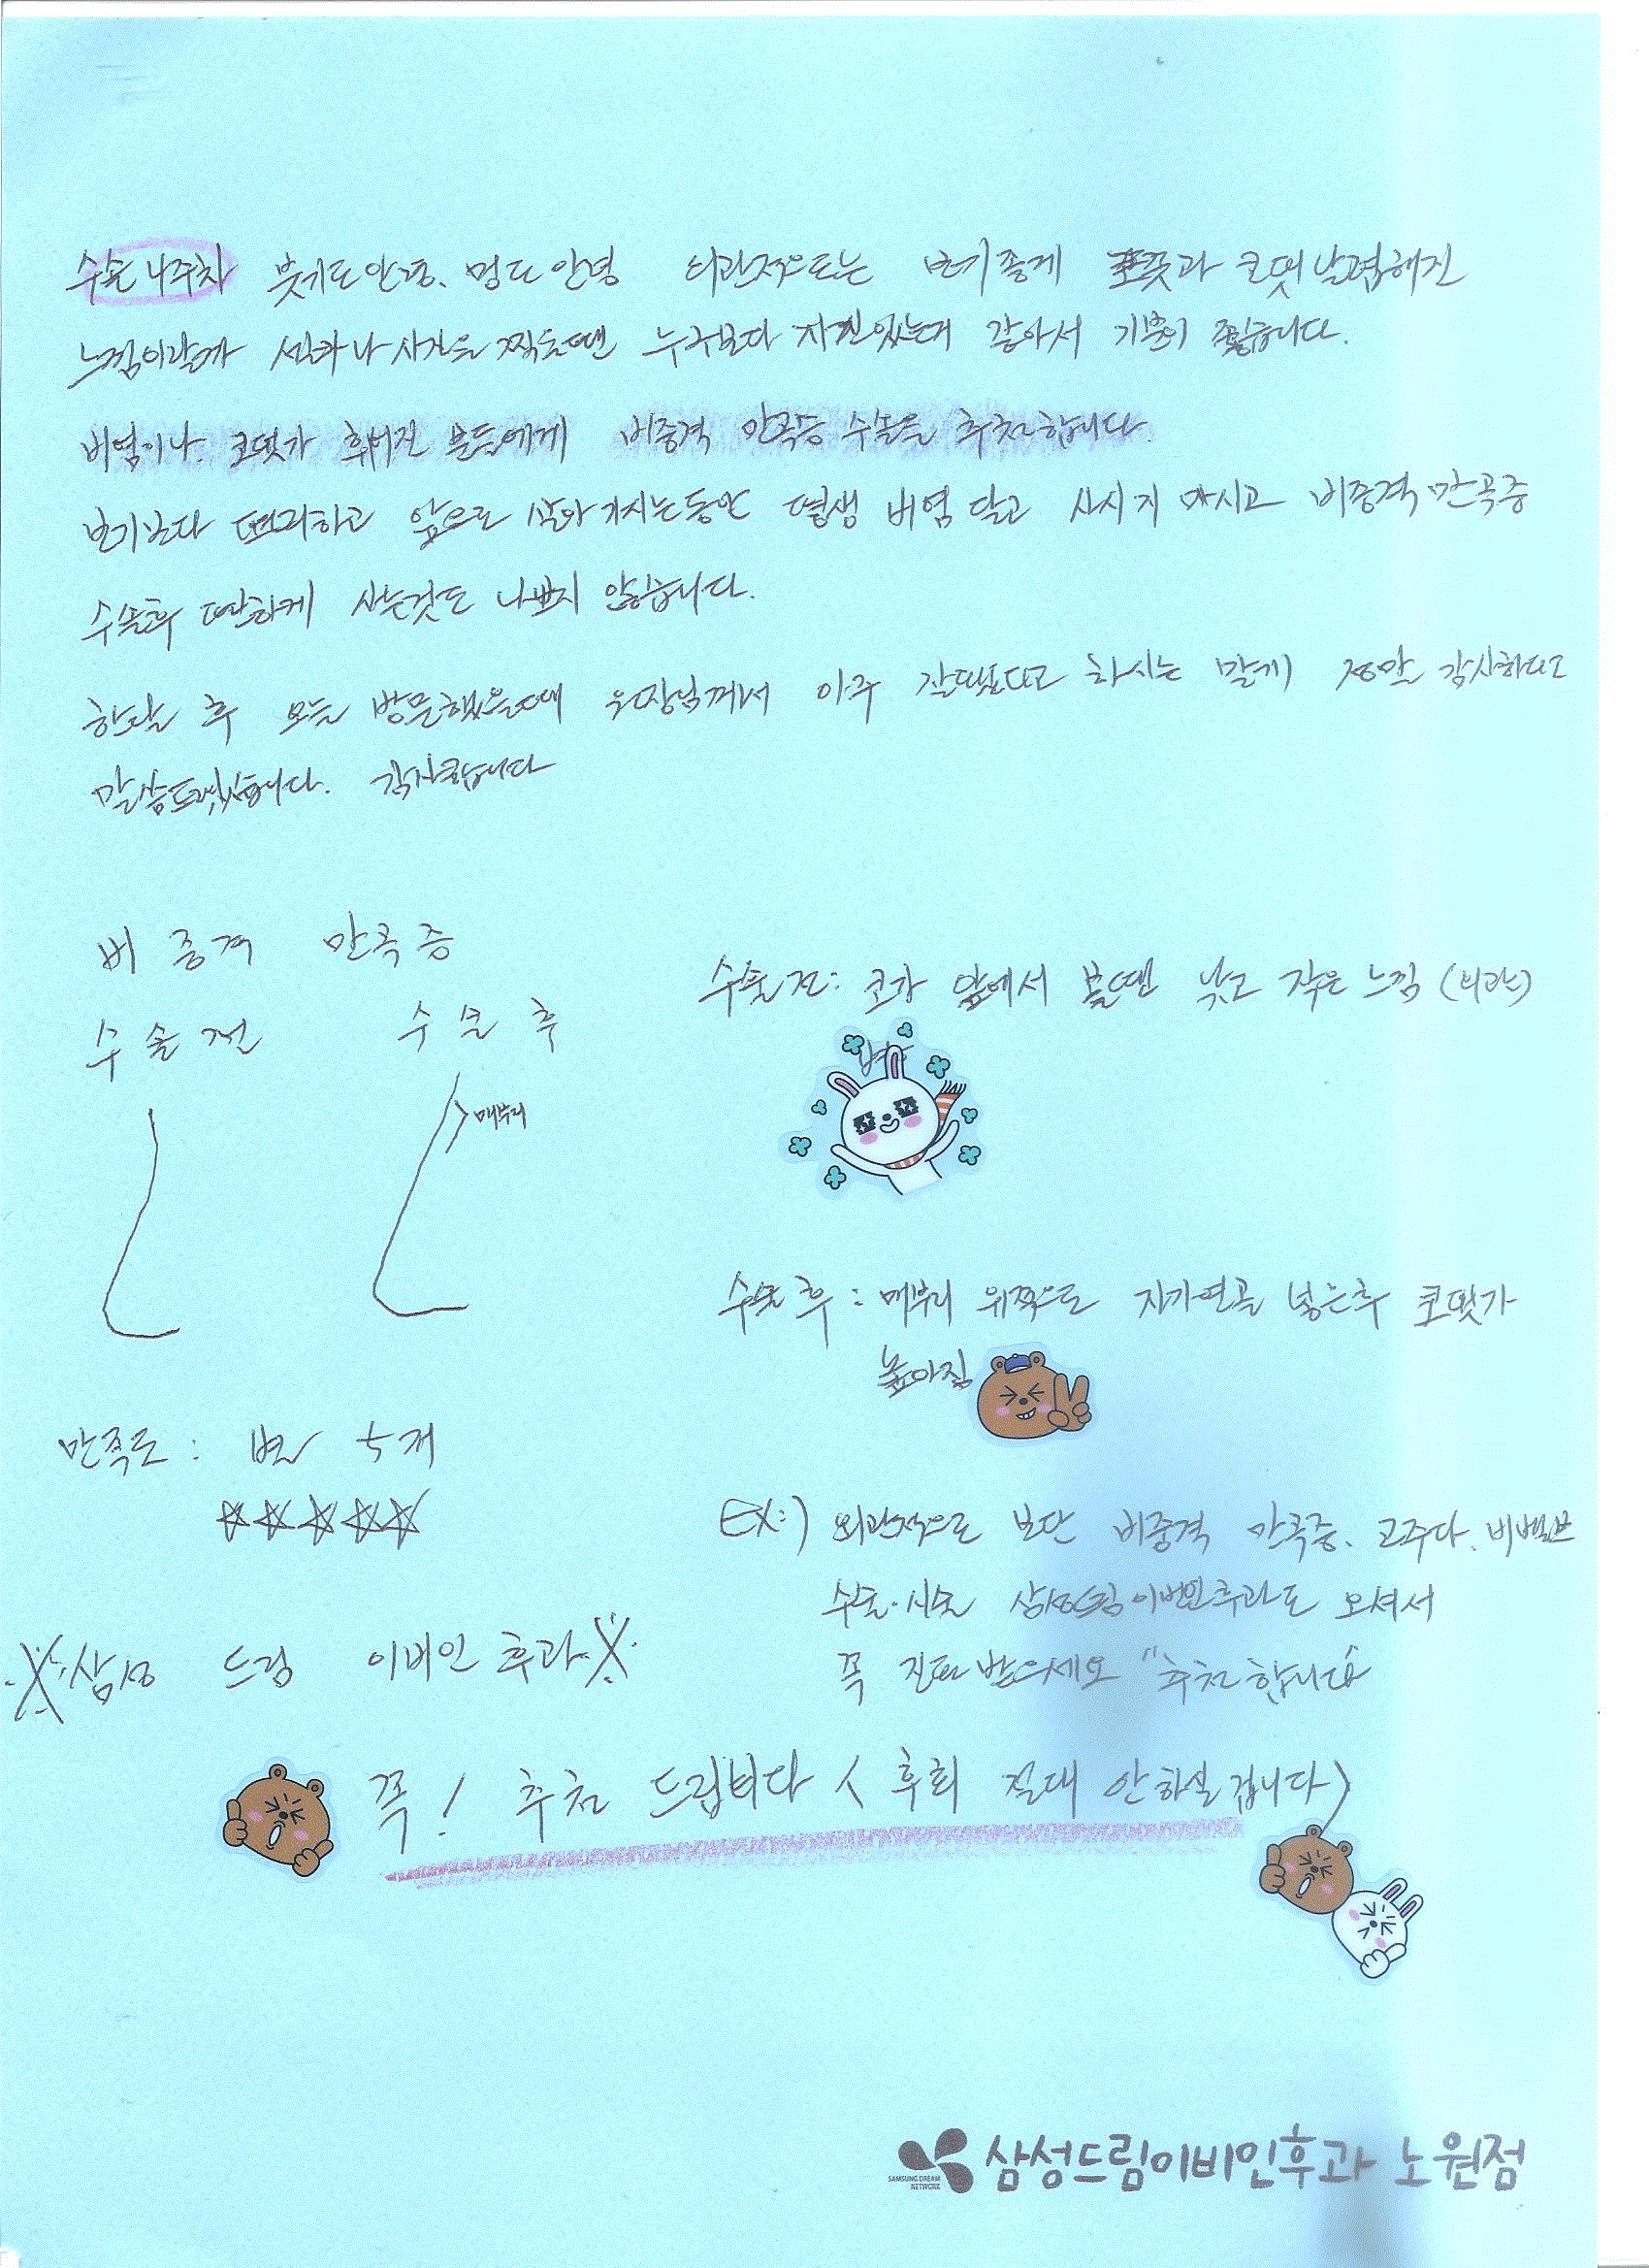 수술 4주차 붓기도 안녕. 멍도 안녕 외관적으로는 보기좋게 코끝과 콧대 날렵해진
느낌이랄까 셀카나 사진을 찍을땐 누구보다 자신있는거 같아서 기분이 좋습니다.
비염이나. 코뼈가 휘어진 분들에게 비중격 만곡증 수술을 추천합니다.
보기보다 편리하고 앞으로 살아가시는동안 평생 비염 달고 사시지 마시고 비중격 만곡증
수술후 편하게 사는것도 나쁘지 않습니다.
한달 후 오늘 방문했을때 원장님께서 아주 잘됐다고 하시는 말에 정말 감사하다고
말씀드렸습니다. 감사합니다
비중격 만곡증
수술전 수술후
매부리
수술전: 코가 앞에서 볼땐 낮고 작은 느낌 (외관)
수술후: 매부리 위쪽으로 자가연골 넣은후 콧대가
높아짐
만족도: 별 5개
☆☆☆☆☆
EX:) 외관적으로 보단 비중격 만곡증. 고주파. 비밸브
수술.시술 삼성드림이비인후과로 오셔서
꼭 진료받으세요 "추천합니다"
※삼성 드림 이비인후과※
꼭! 추천 드립니다 (후회 절대 안하실겁니다)
SAMSUNG DREAM
NETWORK
삼성드림이비인후과 노원점